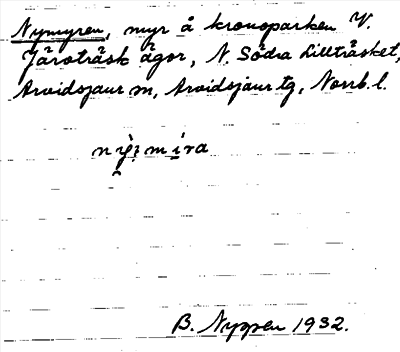 Nymyren, myr å kronoparken V.
Järvträsk ägor, N. Södra Lillträsket,
Arvidsjaur sn, Arvidsjaur tg, Norrb. l.
B. Nyppen 1932.